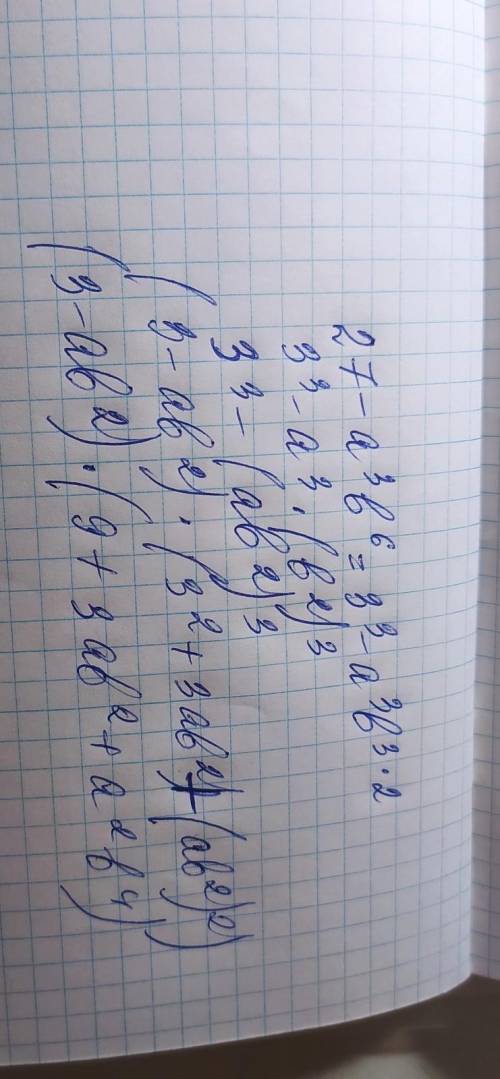 27 - a³b⁶ = 3³ - a³b³·²
3³ - a³ · (b²)³
3³ - (ab²)³
(3 - ab²) · (3² + 3ab² + (ab²)²)
(3 - ab²) · (9 + 3ab² + a²b⁴)